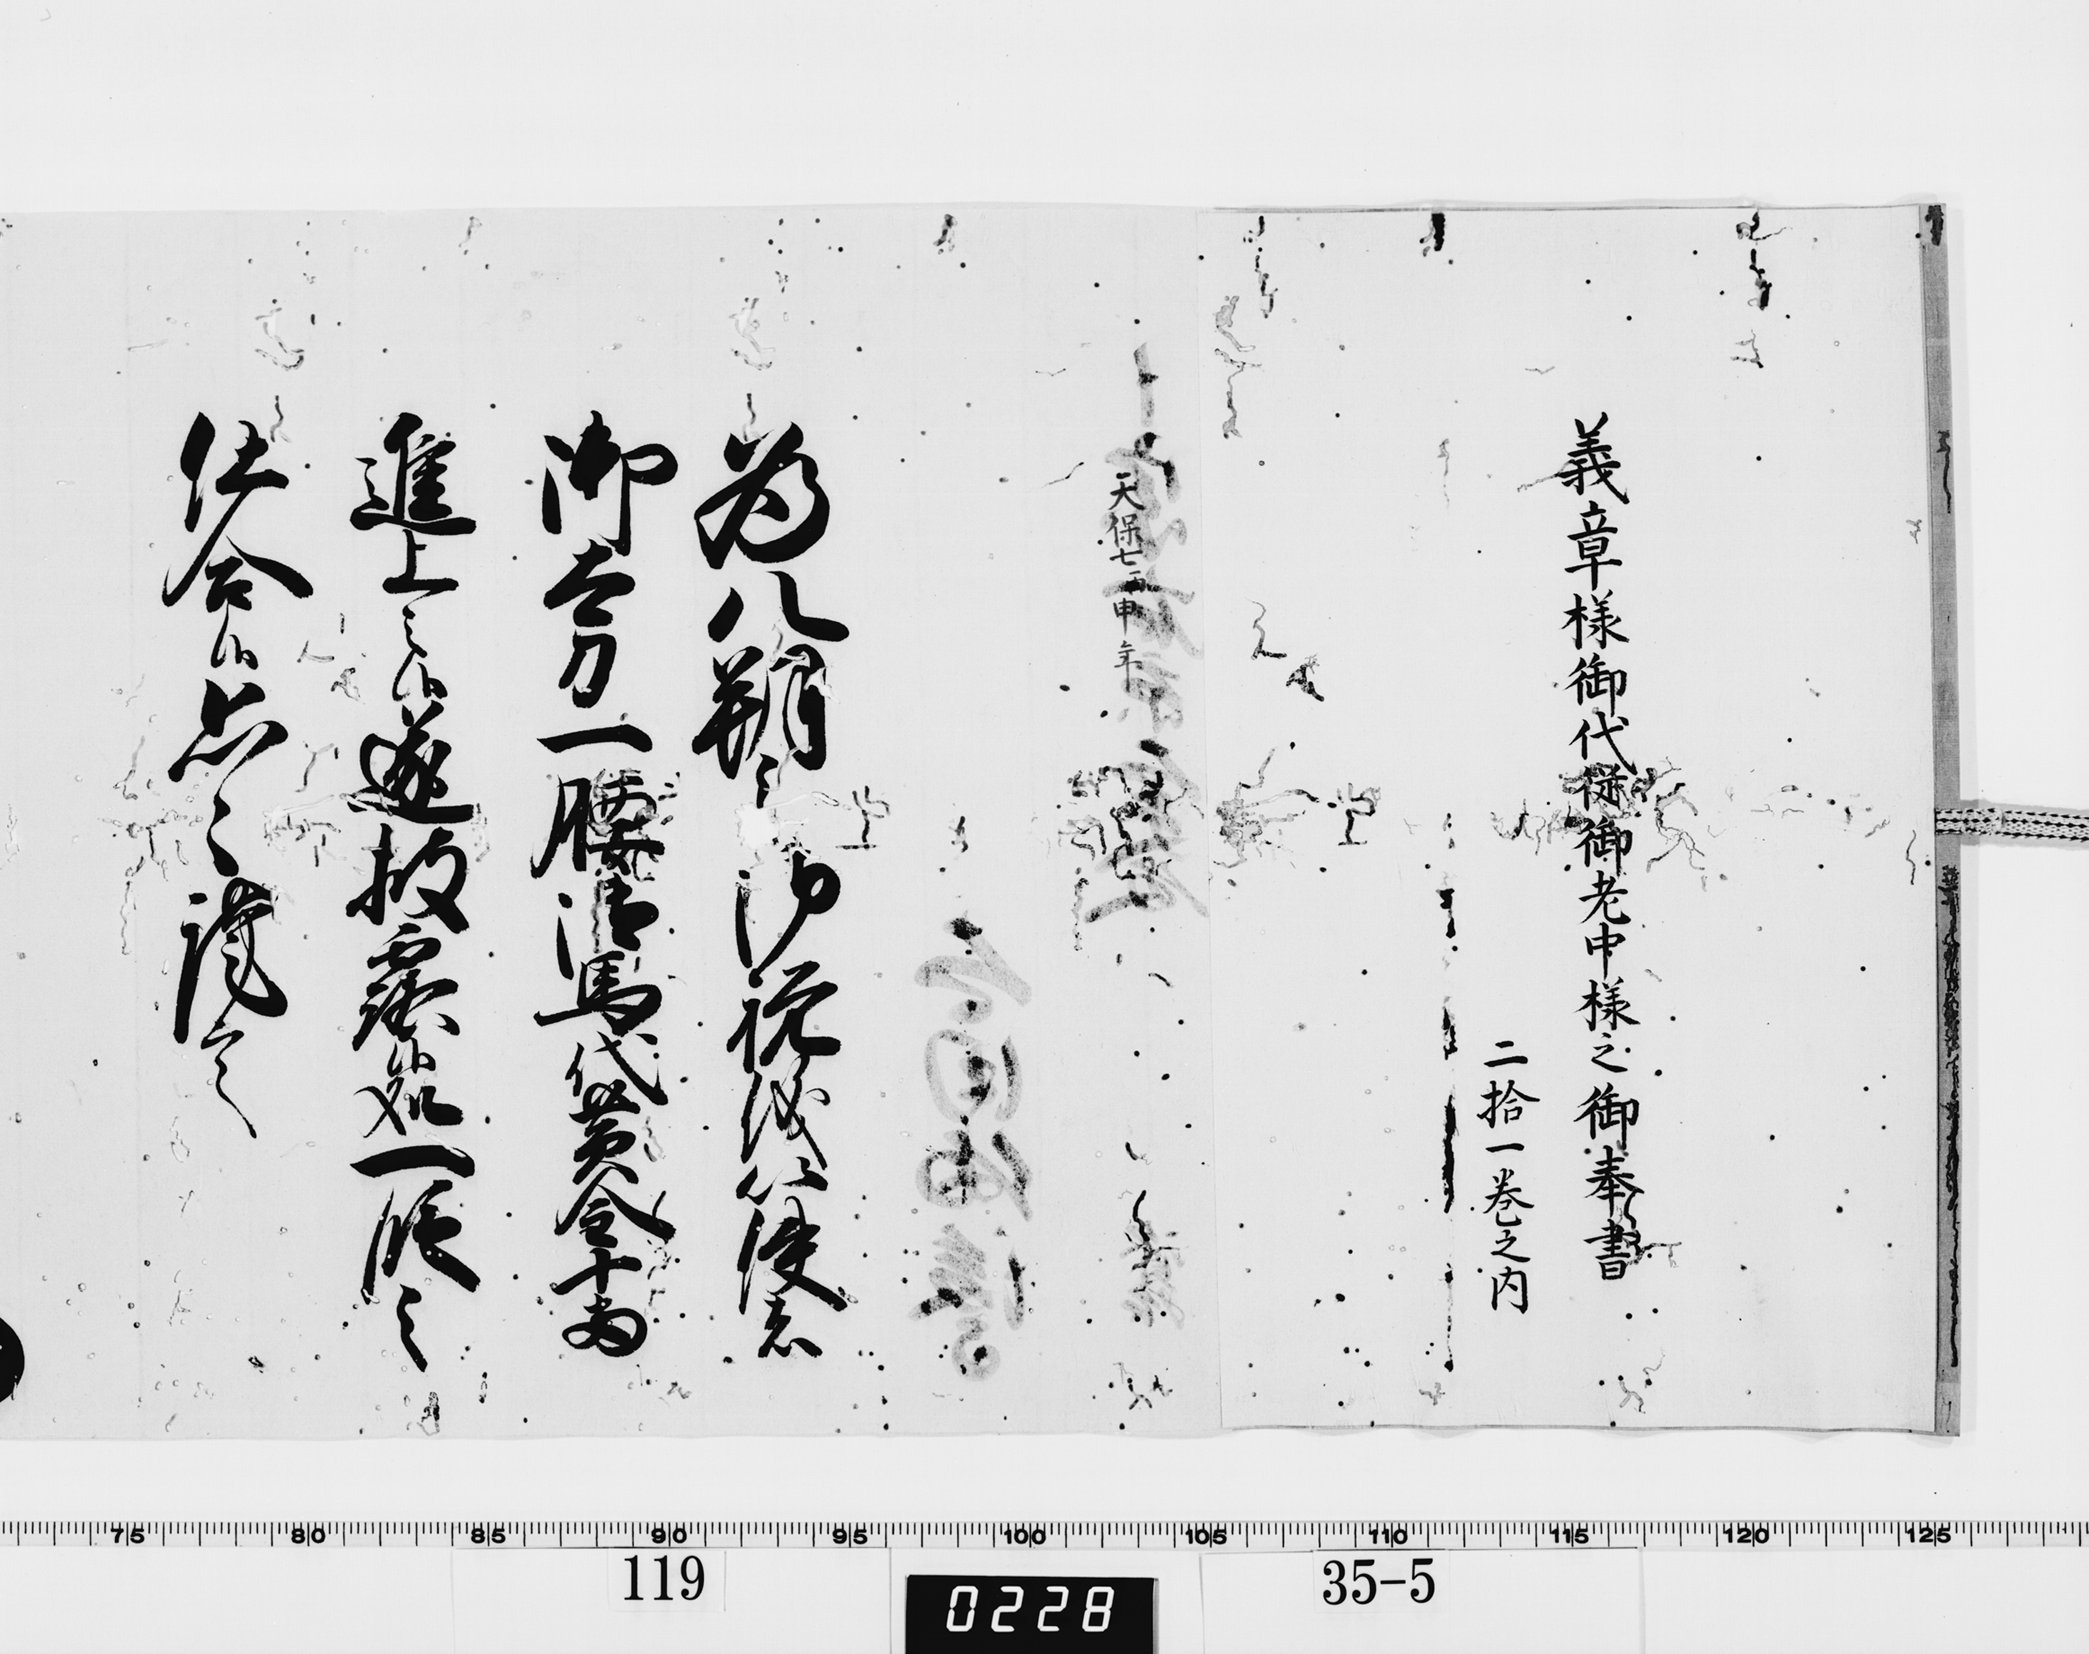 義章様御代従御老中様之御奉書
二拾一巻之内
天保七丙申年
為八朔之御祝儀以使者
御太刀一腰御馬代黄金十両
進上之候遂披露候処一段之
仕合候恐々謹言
75 80 85 90 95 100 105 110 115 120 125
119
0228
35-5